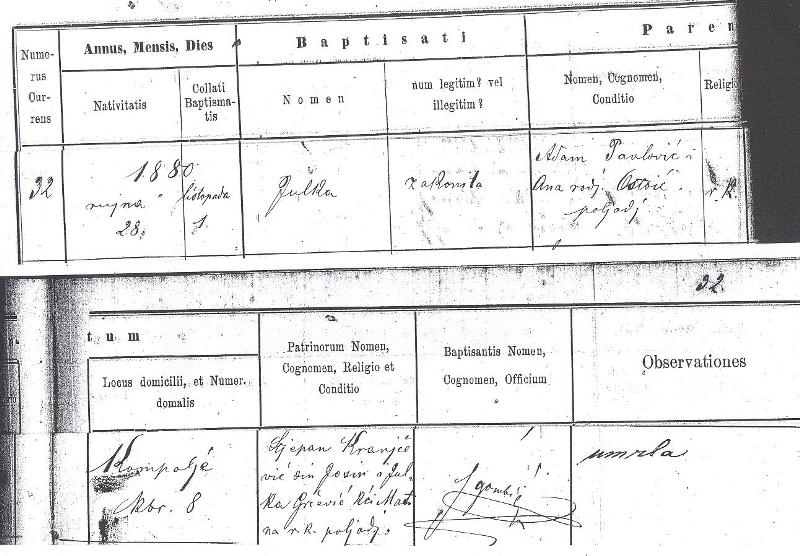 Numerus Currens
Annus, Mensis, Dies
Baptisati
Paren
Nativitatis
Collati Baptismatis
Nomen
num legitim? vel illegitim?
Nomen, Cognomen, Conditio
Religio
32
1880
rujna
28.
listopada
1.
Julka
zakonita
Adam Pavlović i
Ana rodj. Ostović
poljodj.
r. k.
32.
tum
Locus domicilii, et Numer. domalis
Patrinorum Nomen, Cognomen, Religio et Conditio
Baptisantis Nomen, Cognomen, Officium
Observationes
Kompolje
kbr. 8
Stjepan Kranjče
vić sin Josin i Jul
ka kći Mat
na r. k. poljodj.
umrla